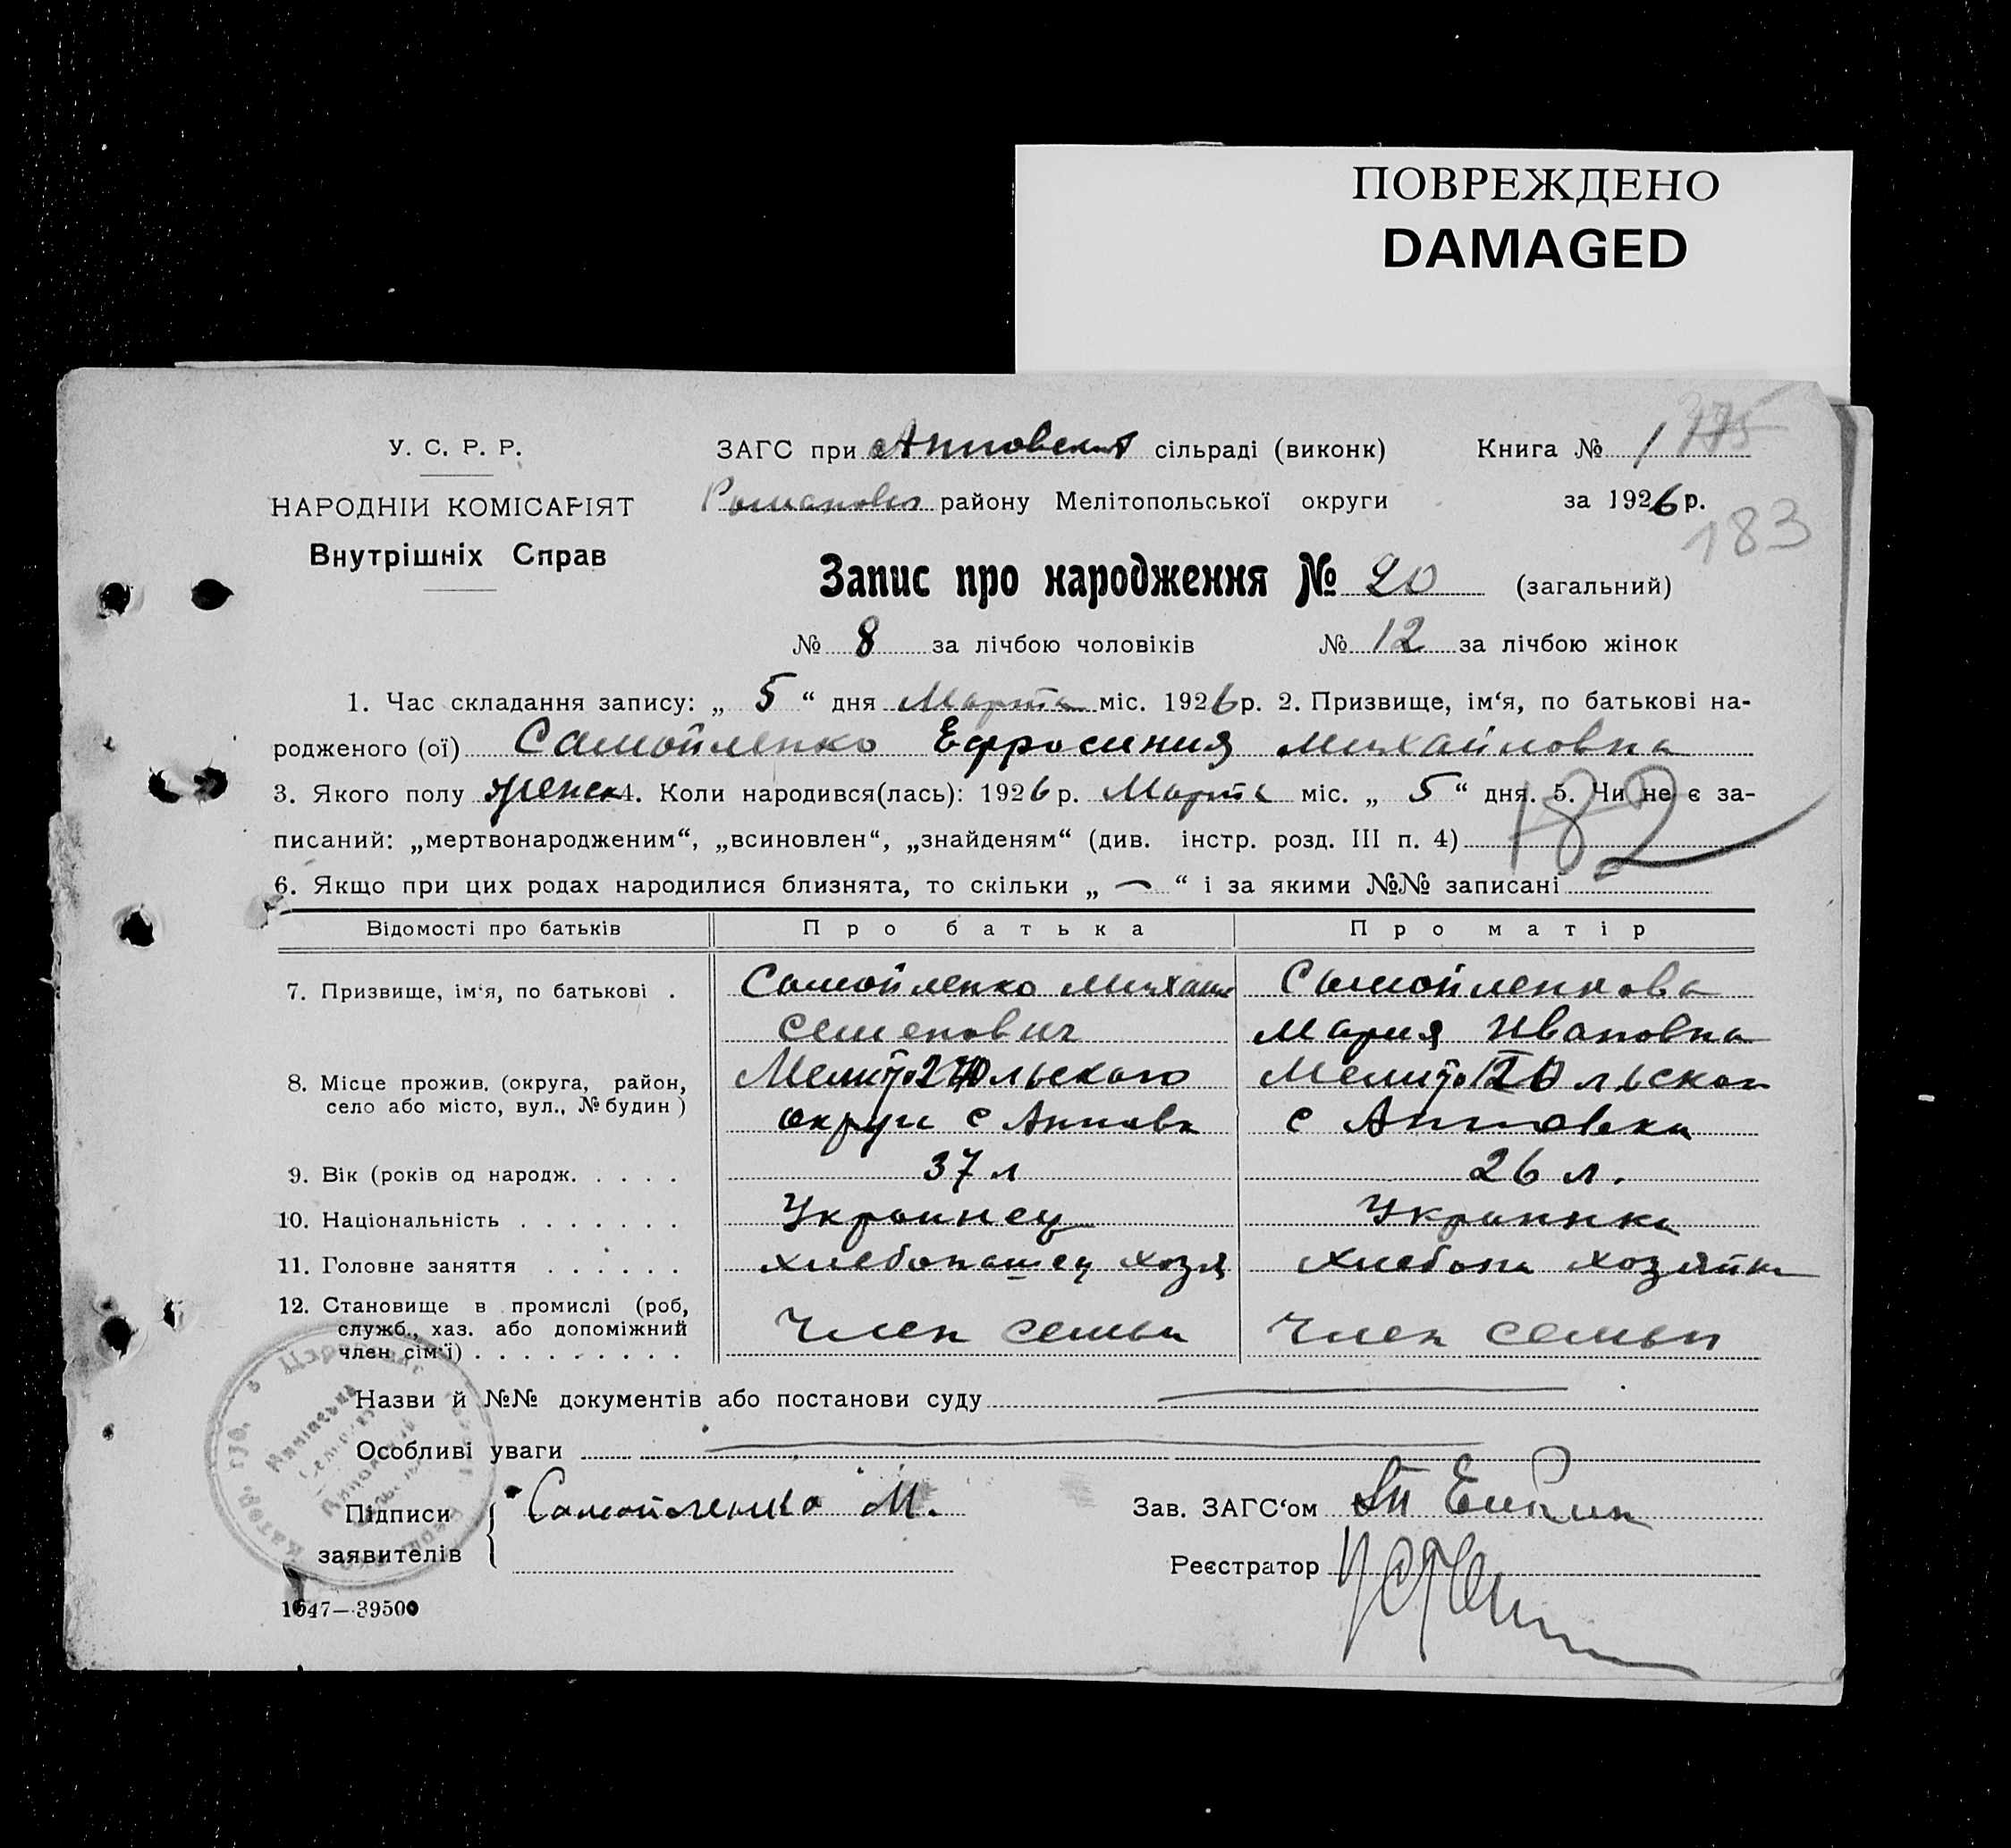 ПОВРЕЖДЕНО
DAMAGED
У. С. Р. Р.
НАРОДНІЙ КОМІСАРІЯТ
Внутрішніх Справ
ЗАГС при сільраді (виконк) Книга № 1 375
району Мелітопольської округи за 1926 р.
183
Запис про народження № 20 (загальний)
№ 8 за лічбою чоловіків № 12 за лічбою жінок
1. Час складання запису: „ 5 “ дня Марта міс. 1926 р. 2. Призвище, ім‘я, по батькові на-
родженого (ої) Самойленко Ефросиния Михайловна
3. Якого полу женск 4. Коли народився(лась): 1926 р. Марта міс. „ 5 “ дня. 5. Чи не є за-
писаний: „мертвонародженим“, „всиновлен“, „знайденям“ (див. інстр. розд. III п. 4)
182
6. Якщо при цих родах народилися близнята, то скільки „ — “ і за якими №№ записані
Відомості про батьків Про батька Про матір
7. Призвище, ім‘я, по батькові . Самойленко Михаил Самойленкова
Семенович Мария Ивановна
8. Місце прожив. (округа, район,
село або місто, вул., № будин )
округи с Анновк с Анновка
9. Вік (років од народж. . . . . 37 л 26 л.
10. Національність . . . . . . . Украинец Украинка
11. Головне заняття . . . . . . хлебопашец хозя хлебопа хозяйка
12. Становище в промислі (роб,
служб., хаз. або допоміжний
член сім‘ї) . . . . . . . . . Член семьи Член семьи
Назви й №№ документів або постанови суду
Особливі уваги
Підписи
заявителів
Самойленко М.
Зав. ЗАГС‘ом
Реєстратор
1647—39500